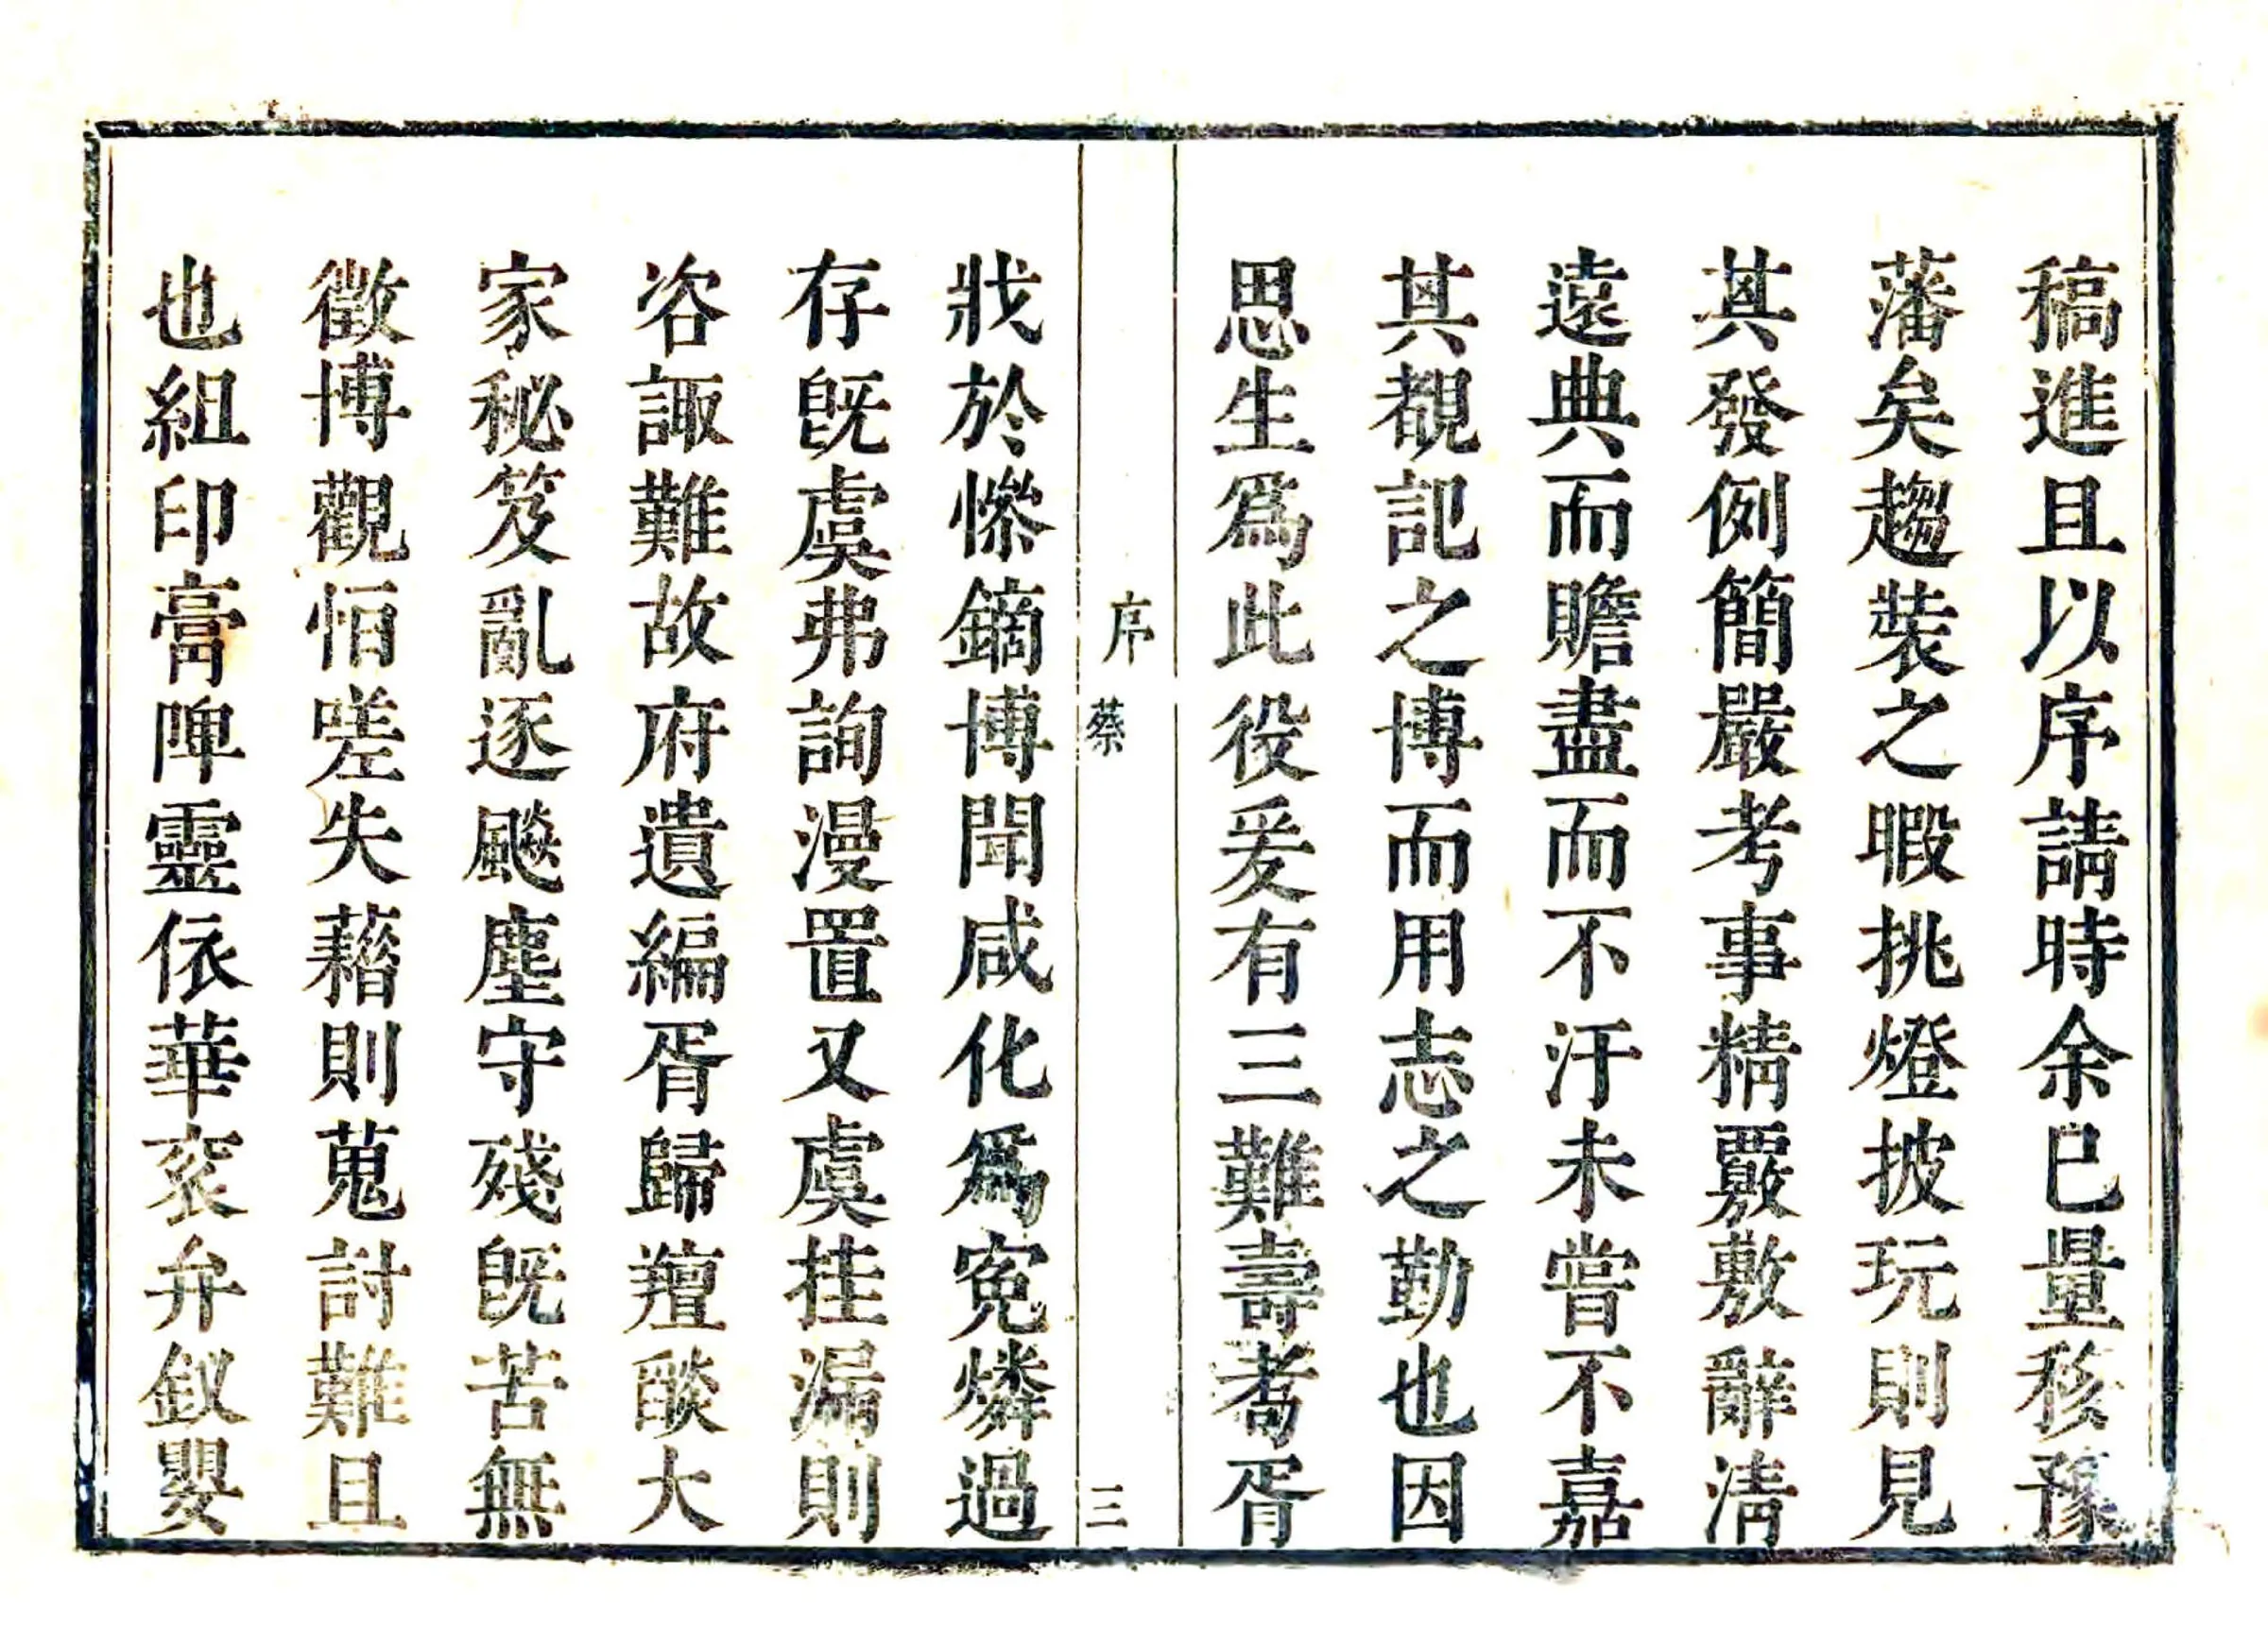 稿進且以序請時余已量移豫
藩矣趨裝之暇挑燈披玩則見
其發例簡嚴考事精覈敷辭淸
遠典而贍盡而不汙未嘗不嘉
其覩記之博而用志之勤也因
思生爲此役爰有三難壽耉胥
序
蔡
三
戕於慘鏑博聞咸化爲寃燐過
存旣虞弗詢漫置又虞挂漏則
咨諏難故府遺編胥歸羶燄大
家秘笈亂逐飇塵守殘旣苦無
徵博觀怕嗟失藉則蒐討難且
也組印膏陴靈依華衮弁釵嬰